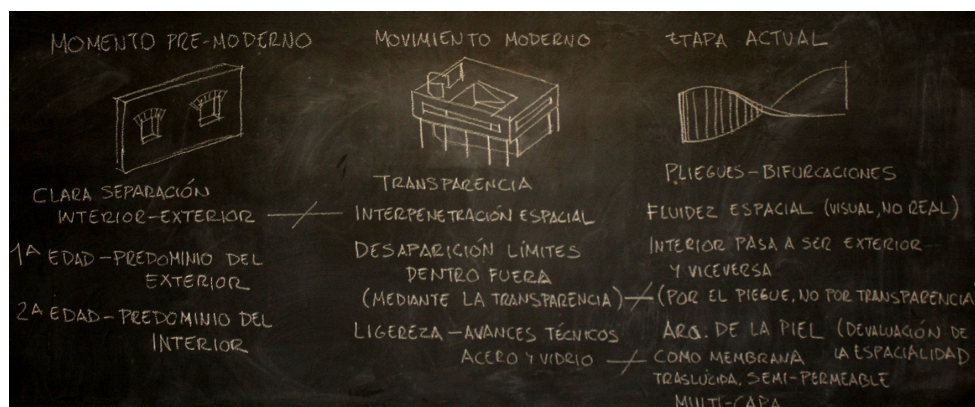 MOMENTO PRE-MODERNO
CLARA SEPARACIÓN
INTERIOR-EXTERIOR
1ª EDAD-PREDOMINIO DEL
EXTERIOR
2ª EDAD-PREDOMINIO DEL
INTERIOR
MOVIMIENTO MODERNO
TRANSPARENCIA
INTERPENETRACIÓN ESPACIAL
DESAPARICIÓN LÍMITES
DENTRO FUERA
(MEDIANTE LA TRANSPARENCIA)
LIGEREZA-AVANCES TÉCNICOS
ACERO Y VIDRIO
ETAPA ACTUAL
PLIEGUES-BIFURCACIONES
FLUIDEZ ESPACIAL (VISUAL, NO REAL)
INTERIOR PASA A SER EXTERIOR
Y VICEVERSA
(POR EL PIEGUE, NO POR TRANSPARENCIA
ARQ. DE LA PIEL (DEVALUACIÓN DE
COMO MEMBRANA LA ESPACIALIDAD
TRASLUCIDA, SEMI-PERMEABLE
MULTI-CAPA